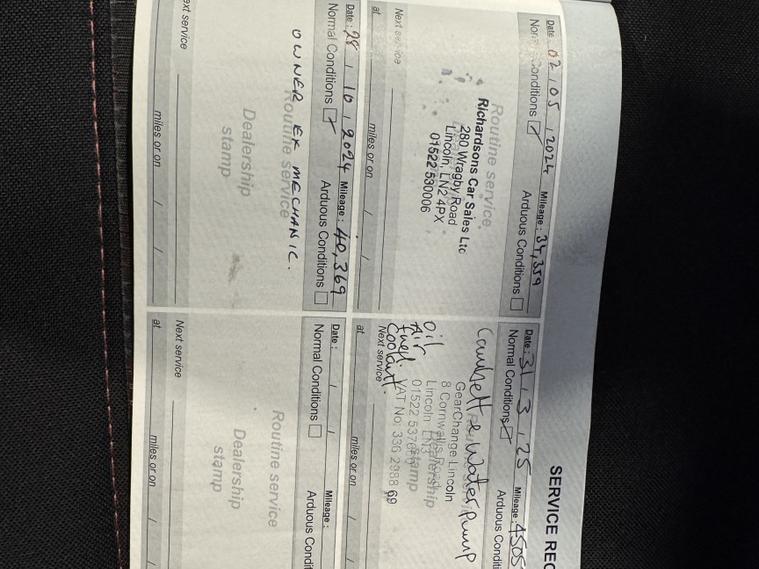 SERVICE REC
Date: 02 / 05 / 2024 Mileage: 34,359
Normal Conditions ☑ Arduous Conditions ☐
Routine service
Richardsons Car Sales Ltd
280 Wragby Road
Lincoln, LN2 4PX
01522 530006
Next service
at miles or on / /
Date: 28 / 10 / 2024 Mileage: 40,369
Normal Conditions ☑ Arduous Conditions ☐
Routine service
OWNER EX MECHANIC.
Dealership
stamp
Next service
at miles or on / /
Date: 31 / 3 / 25 Mileage: 4505
Normal Conditions ☑ Arduous Conditi
Cambelt & Water Pump
GearChange Lincoln
8 Cornwall
Lincoln
Dealership
01522
stamp
VAT No: 336 2988 69
Oil
Air
Fuel
Coolant.
Next service
at miles or on / /
Date: / / Mileage:
Normal Conditions ☐ Arduous Condit
Routine service
Dealership
stamp
Next service
at miles or on /